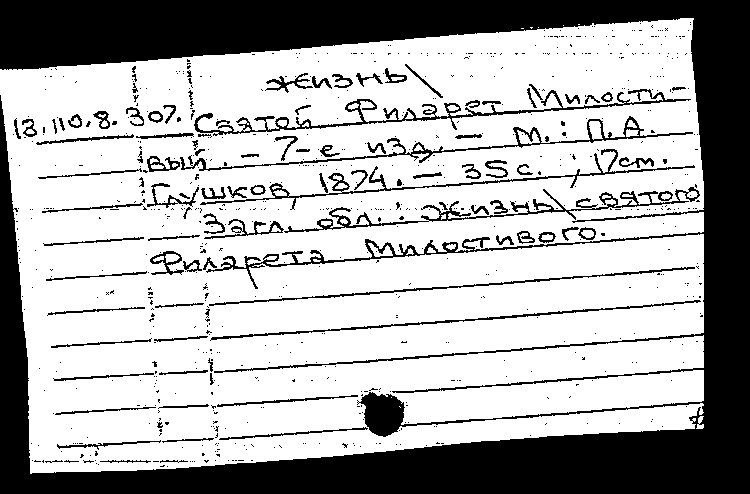 жизнь\
13.110.8.307. Святой Филарет Милости-
вый. – 7-е изд. – М.: П.А.
Глушков, 1874. – 35 с. ; 17 cm.
Загл. обл.: Жизнь\ святого
Филарета Милостивого.